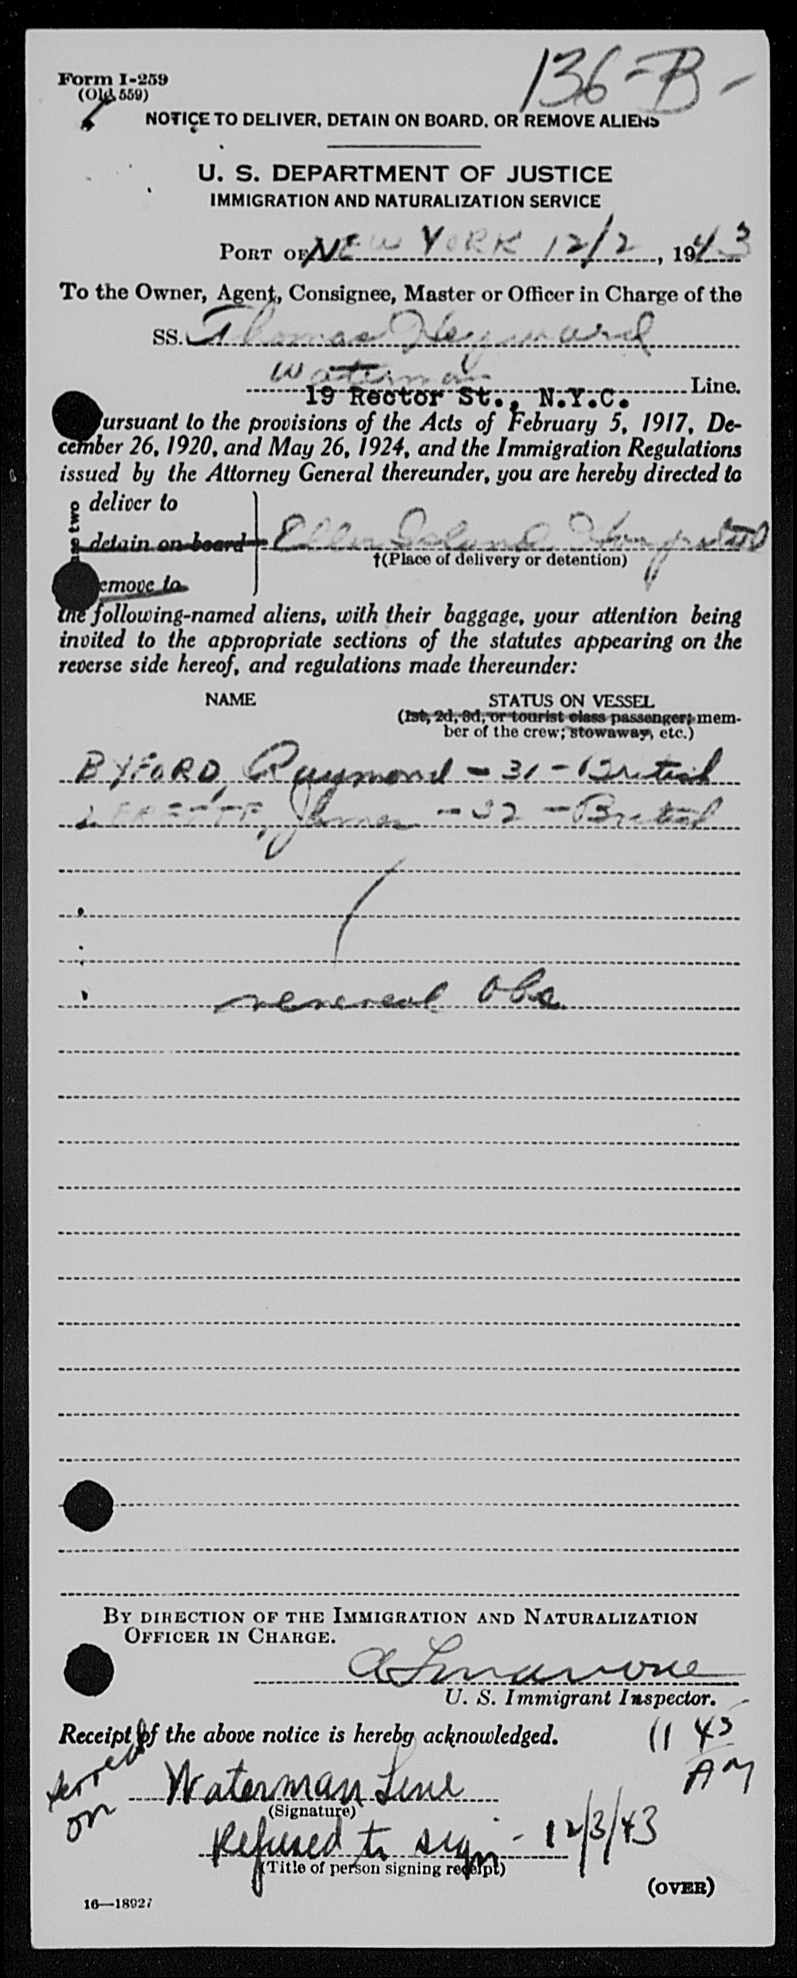 136-B-
Form I-259
(Old 559)
NOTICE TO DELIVER, DETAIN ON BOARD, OR REMOVE ALIENS
U. S. DEPARTMENT OF JUSTICE
IMMIGRATION AND NATURALIZATION SERVICE
PORT OF NEW YORK 12/2, 1943
To the Owner, Agent, Consignee, Master or Officer in Charge of the
SS. Thomas Heyward
Waterman Line.
19 Rector St., N.Y.C.
ursuant to the provisions of the Acts of February 5, 1917, De-
cember 26, 1920, and May 26, 1924, and the Immigration Regulations
issued by the Attorney General thereunder, you are hereby directed to
deliver to
detain on board Ellis Island Hospital
†(Place of delivery or detention)
emove to
the following-named aliens, with their baggage, your attention being
invited to the appropriate sections of the statutes appearing on the
reverse side hereof, and regulations made thereunder:
NAME STATUS ON VESSEL
(1st, 2d, 3d, or tourist class passenger; mem-
ber of the crew; stowaway, etc.)
BYFORD, Raymond - 31 - British
James - 32 - British
venereal Obs.
BY DIRECTION OF THE IMMIGRATION AND NATURALIZATION
OFFICER IN CHARGE.
U. S. Immigrant Inspector.
Receipt of the above notice is hereby acknowledged.
11 45
AM
served
on Waterman Line
(Signature)
Refused to sign - 12/3/43
(Title of person signing receipt)
(OVER)
16—18927